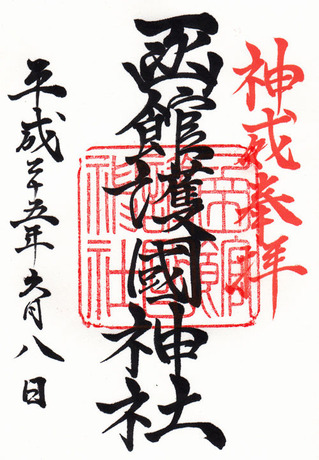 神奉拝
函館護國神社
平成二十五年六月八日
函館
護國
神社